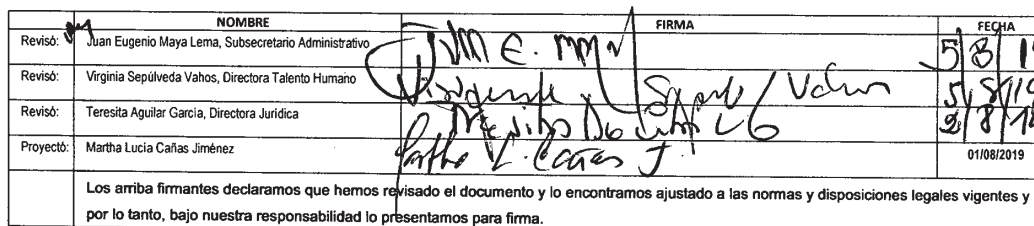 NOMBRE FIRMA FECHA
Revisó: Juan Eugenio Maya Lema, Subsecretario Administrativo 5/8/1
Revisó: Virginia Sepúlveda Vahos, Directora Talento Humano 5/8/19
Revisó: Teresita Aguilar García, Directora Jurídica 2/8/1
Proyectó: Martha Lucía Cañas Jiménez Martha L. Cañas J. 01/08/2019
Los arriba firmantes declaramos que hemos revisado el documento y lo encontramos ajustado a las normas y disposiciones legales vigentes y
por lo tanto, bajo nuestra responsabilidad lo presentamos para firma.